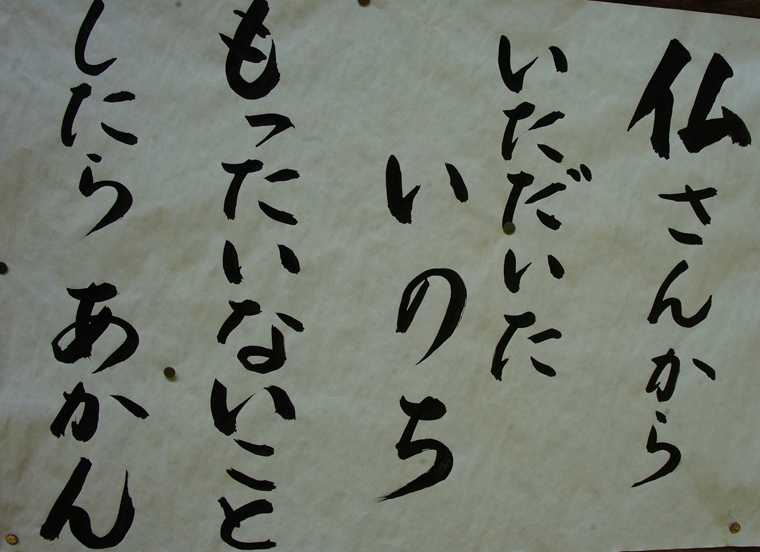 仏さんから
いただいた
いのち
もったいないこと
したら あかん